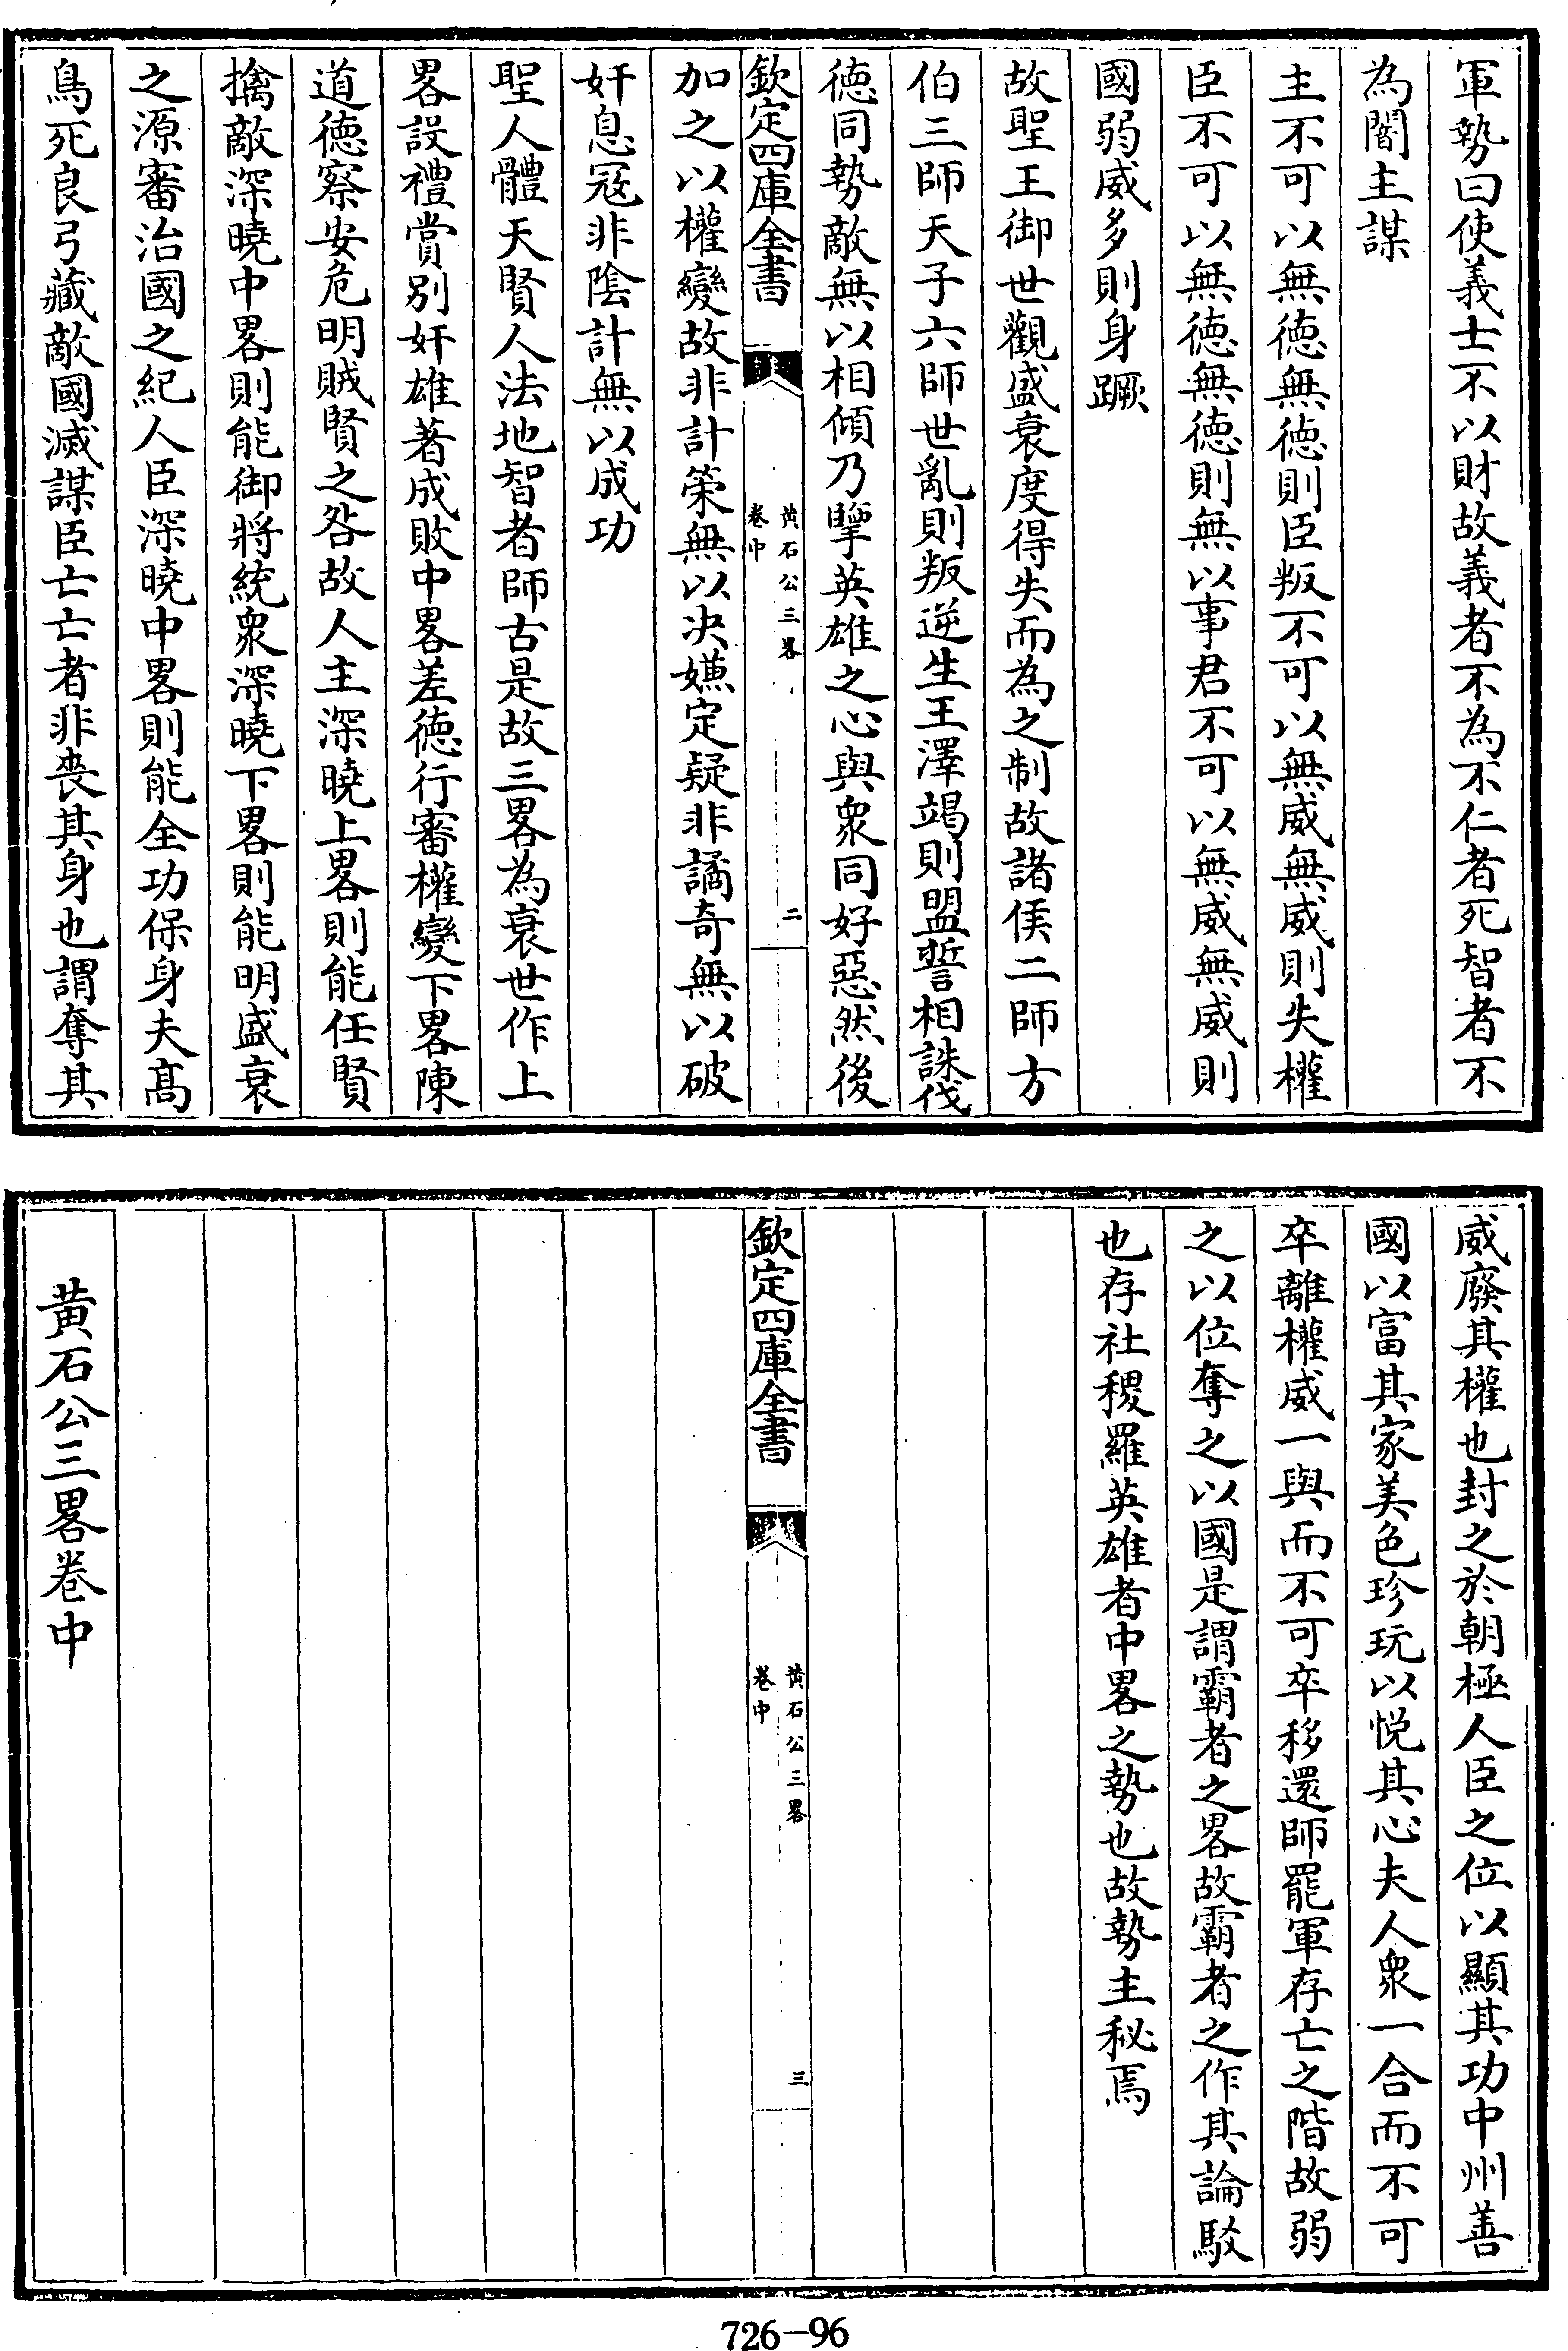 軍勢曰使義士不以財故義者不為不仁者死智者不
為闇主謀
主不可以無徳無徳則臣叛不可以無威無威則失權
臣不可以無徳無徳則無以事君不可以無威無威則
國弱威多則身蹶
故聖王御世觀盛衰度得失而為之制故諸侯二師方
伯三師天子六師世亂則叛逆生王澤竭則盟誓相誅伐
徳同勢敵無以相傾乃擥英雄之心與衆同好惡然後
欽定四庫全書
黄石公三畧
卷中
二
加之以權變故非計策無以决嫌定疑非譎奇無以破
奸息宼非陰計無以成功
聖人體天賢人法地智者師古是故三畧為衰世作上
畧設禮賞别奸雄著成敗中畧差徳行審權變下畧陳
道徳察安危明賊賢之咎故人主深曉上畧則能任賢
擒敵深曉中畧則能御將統衆深曉下畧則能明盛衰
之源審治國之紀人臣深曉中畧則能全功保身夫髙
鳥死良弓藏敵國滅謀臣亡亡者非喪其身也謂奪其
威廢其權也封之於朝極人臣之位以顯其功中州善
國以富其家美色珍玩以悦其心夫人衆一合而不可
卒離權威一與而不可卒移還師罷軍存亡之階故弱
之以位奪之以國是謂霸者之畧故霸者之作其論駁
也存社稷羅英雄者中畧之勢也故勢主秘焉
欽定四庫全書
黄石公三畧
卷中
三
黄石公三畧卷中
726-96